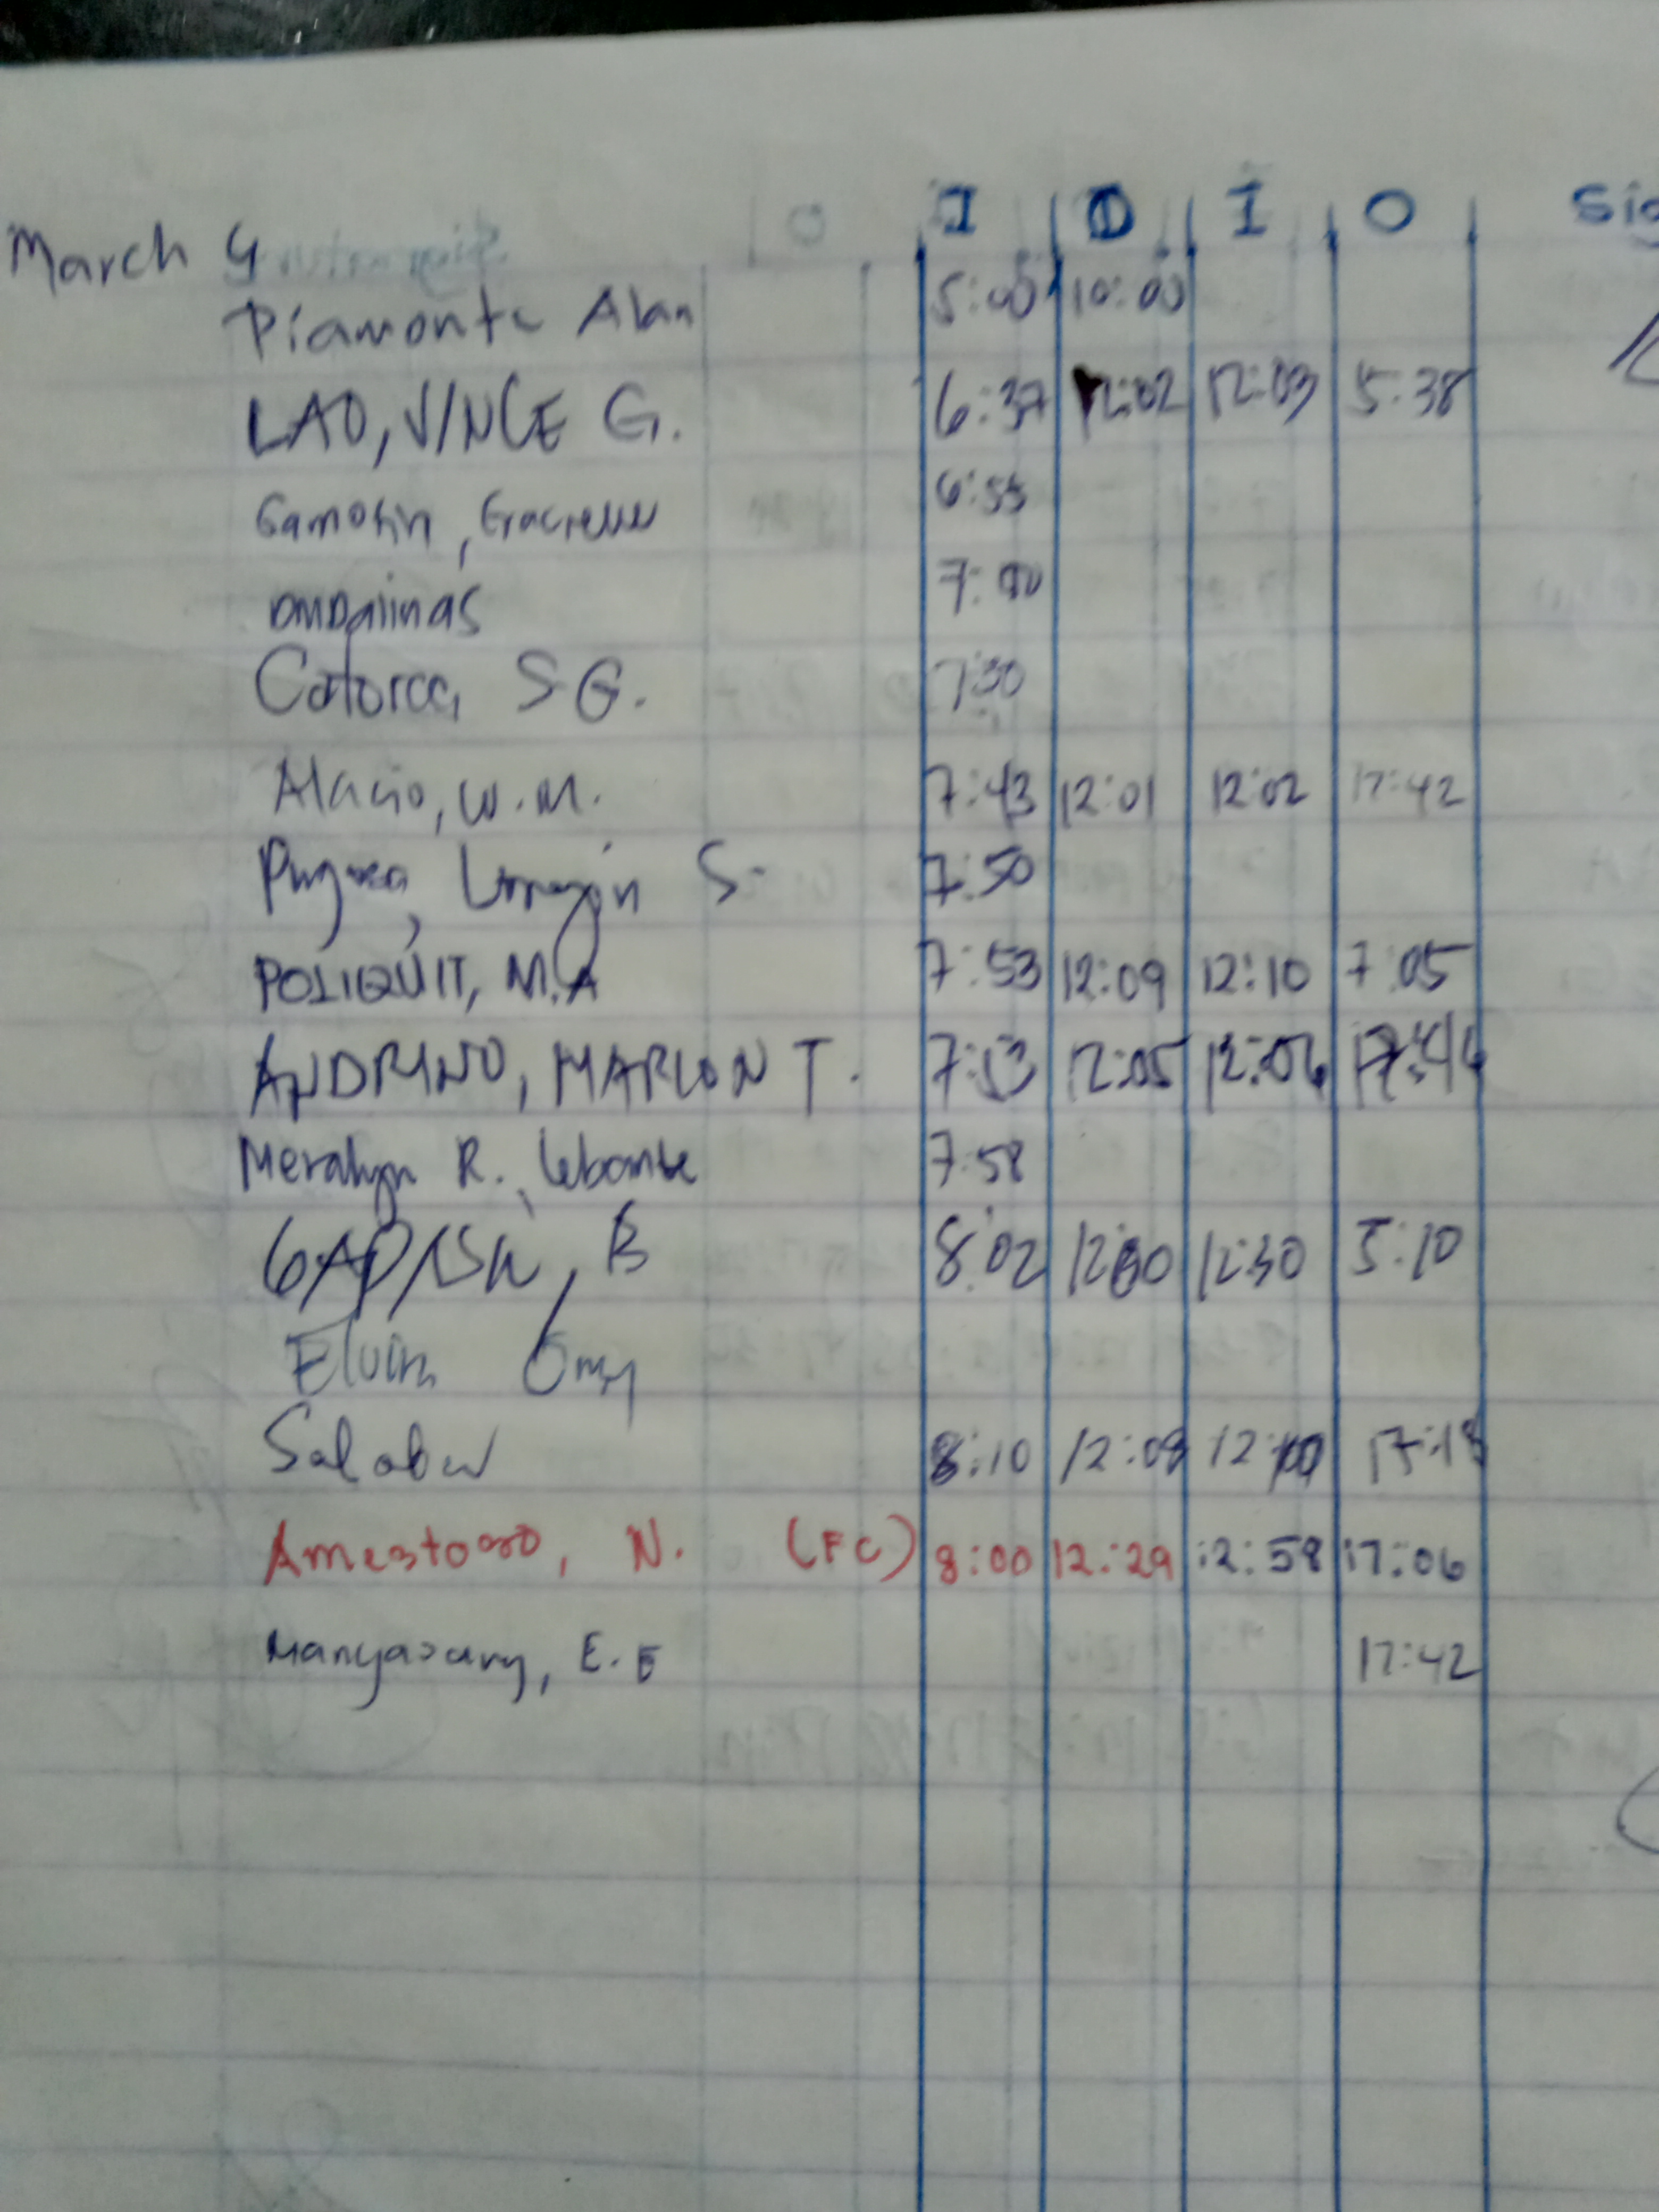 I O I O Sig
March 4
Piamonte Alan 5:00 10:00
LAO, VINCE G. 6:37 12:02 12:03 5:38
Gamotin, 6:55
7:00
Catorca, S G. 7:30
Alacio, W.M. 7:43 12:01 12:02 17:42
S. 7:50
POLIQUIT, M.A 7:53 12:09 12:10 7:05
ANDRINO, MARLON T. 7:53 12:05 12:06
Meralyn R. 7:58
GAPASIN, B 8:02 12:30 5:10
Elvin
Salabu 8:10 12:08 17:18
N. (FC) 8:00 12:29 12:58 17:06
E.E 17:42